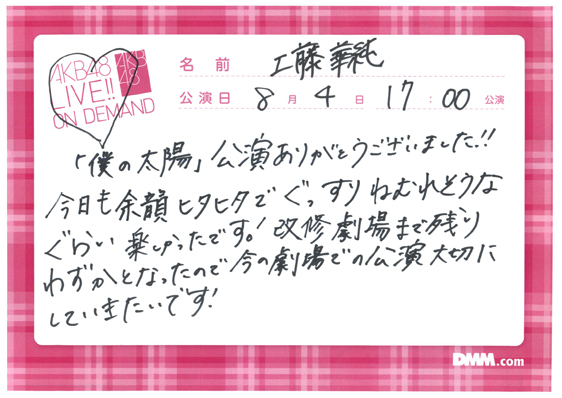 AKB48
LIVE!!
ON DEMAND
AKB
48
名前 工藤華純
公演日 8月4日 17:00 公演
「僕の太陽」公演ありがとうございました!!
今日も余韻ヒタヒタで ぐっすりねむれそうな
ぐらい楽しかったです。! 改修劇場まで残り
わずかとなったので今の劇場での公演大切に
していきたいです!
DMM.com